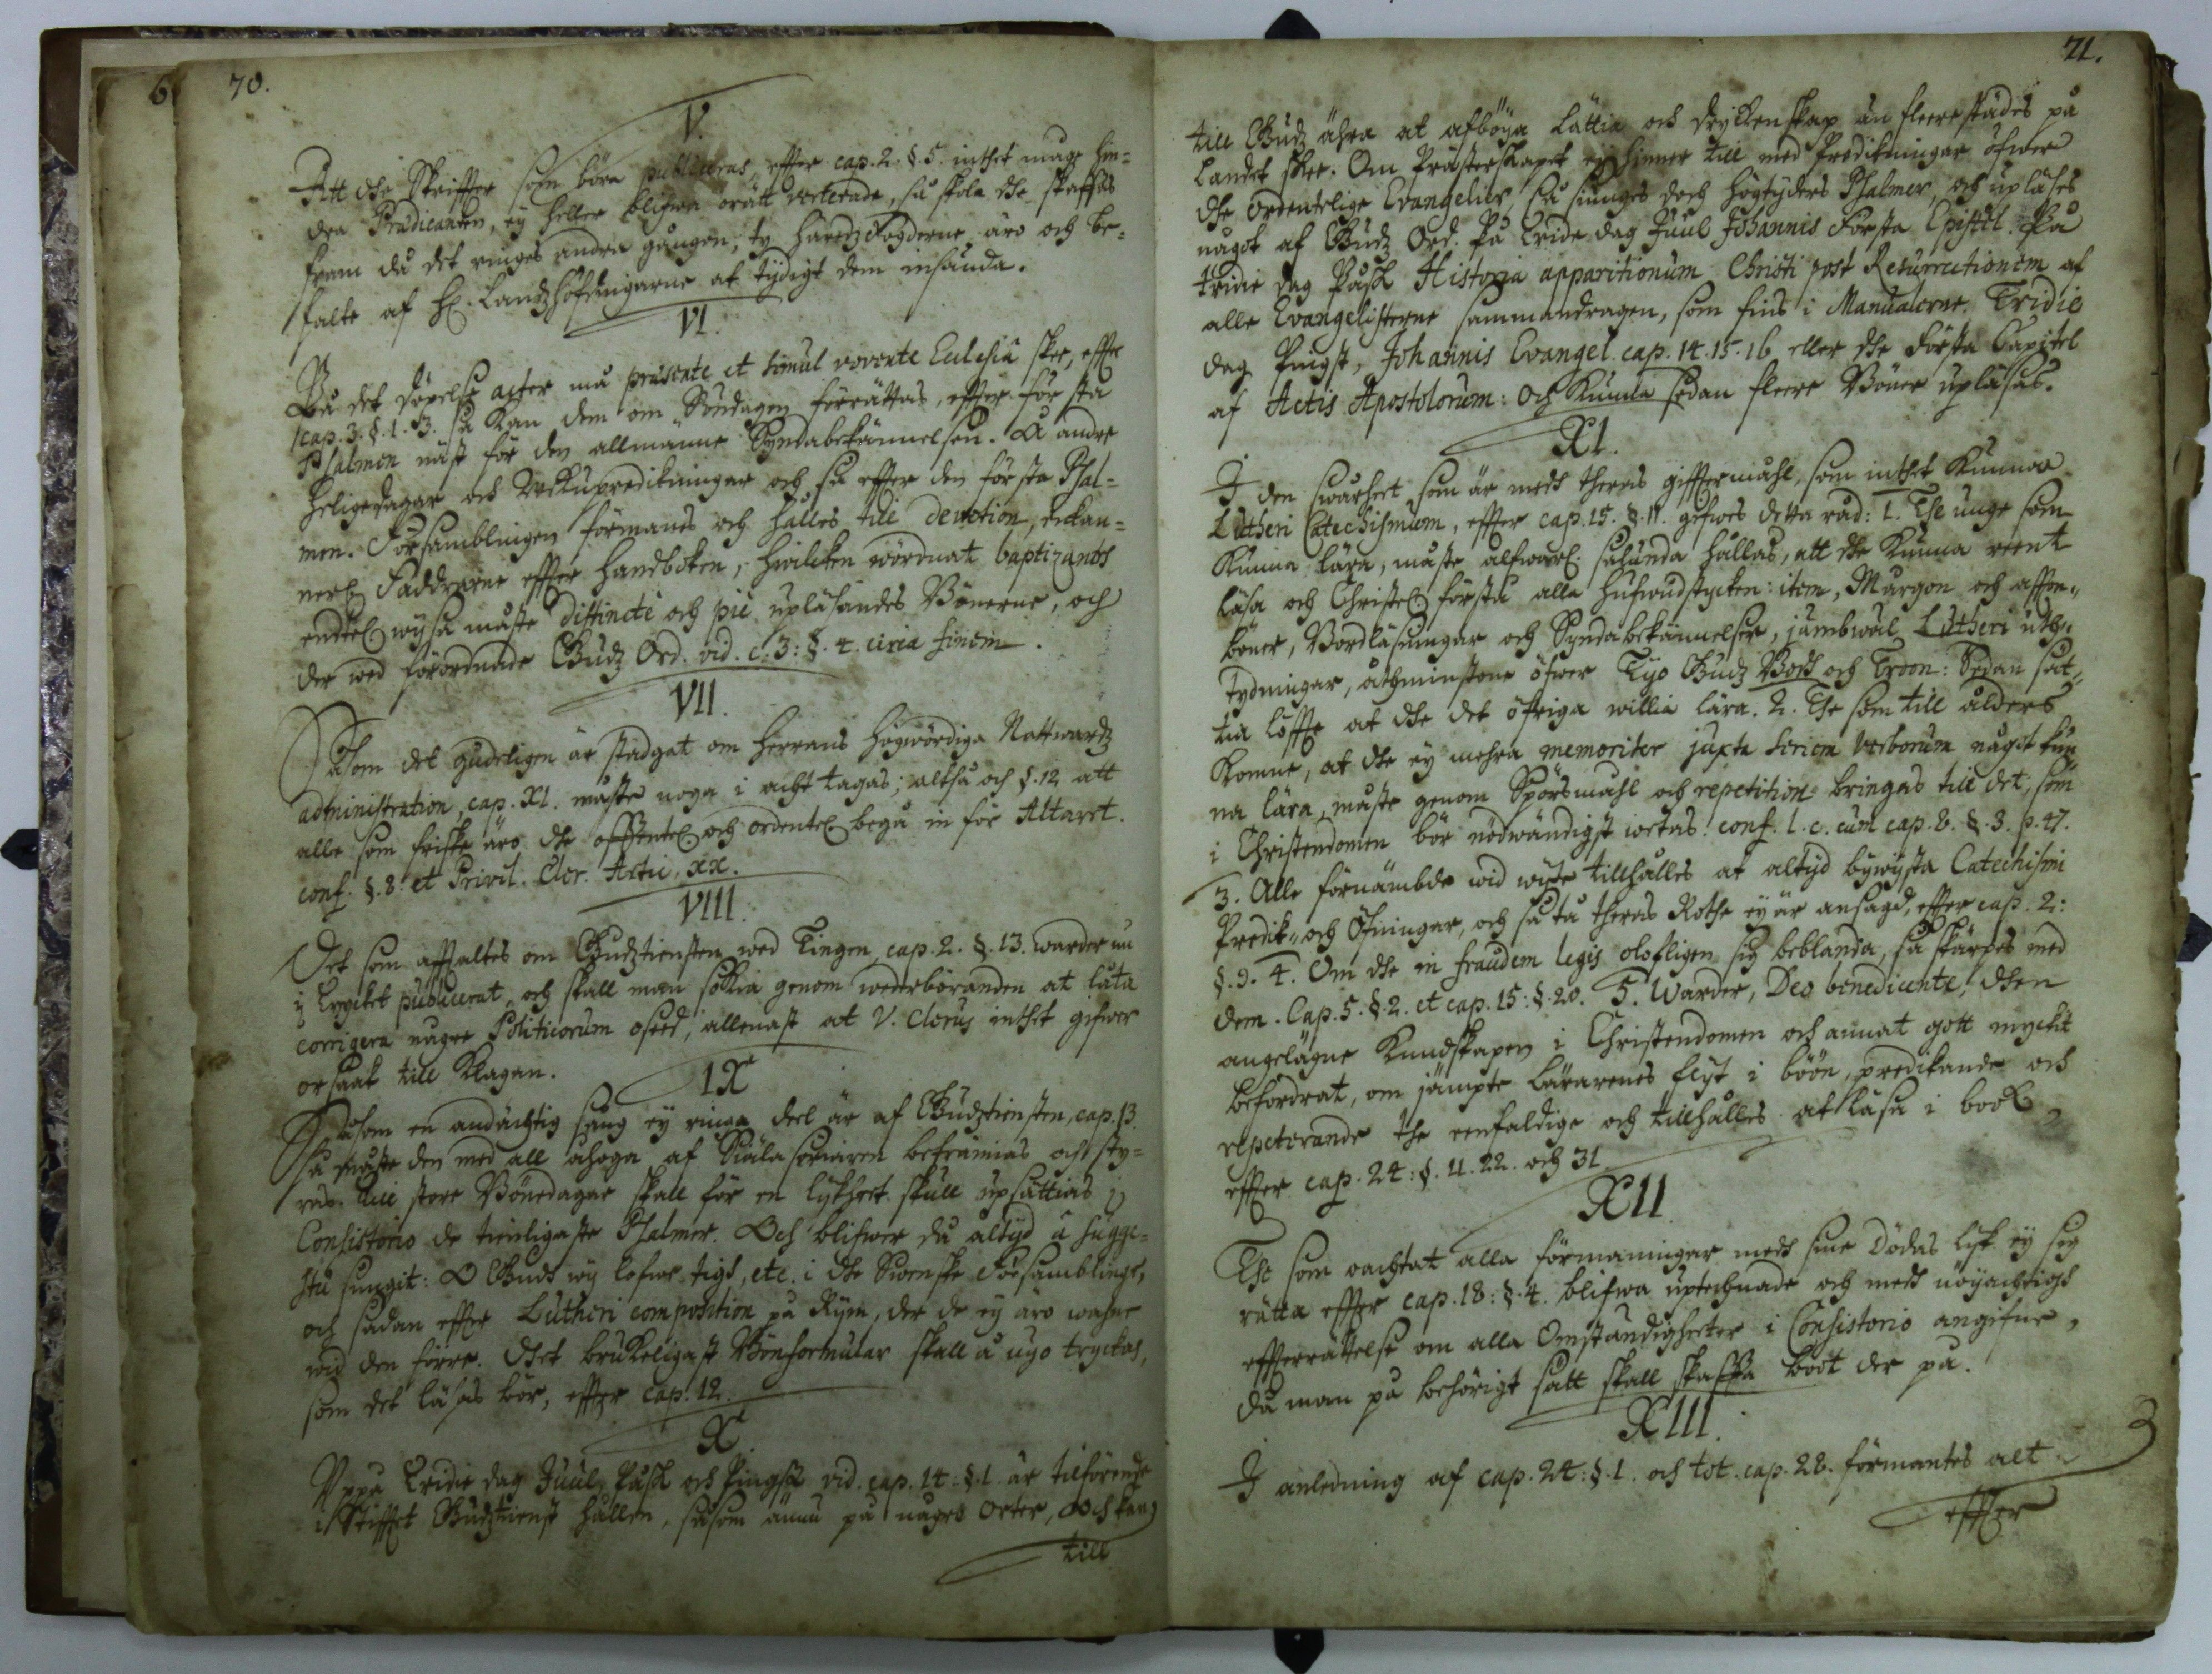 70.
V.
Att dhe Skriffter som böra publiceras, effter cap. 2. §. 5. inthet måge hin=
dra Prædicanten, ey heller blifwa orätt verterade, så skola dhe skaffas
fram då det ringes andra gången, ty häredzfogderne äro och be=
falte af H. Landzhöfdingarne at tydigt dem insända.
VI.
På det döpelse acter må præsente et simul vovente Ecclesiâ skee, effter
cap. 3. §. 1. 3. så kan dem om Söndagen förrättas, effter första
Psalmen näst för den allmänne Syndabekännelsen. Å andre
heligedagar och Wekupredikningar och så effter den första Psal=
men. Församblingen förmanes och hålles till devotion, enkan=
nerl. Faddrarne effter Handboken, hwilcken wördnat baptizantes
endtel. wysa måste distinctè och piè uppläsandes Bönerne, och
der wed förordnade Gudz Ord. vid. c. 3: §. 4. circa finem.
VII.
Såsom det gudeligen är stadgat om Herrans Högwördiga Nattwardz
administration, cap. XI. måste noga i acht tagas; altså och §. 12 att
alle som friske äro dhe offentel. och ordentel. begå in för Altaret.
conf. §. 8: et Privil. Cler. Artic. XX.
VIII.
Det som affaltes om Gudztiensten wed Tingen, cap. 2. §. 13. warder nu
i trycket publicerat, och skall man sökia genom wederböranden at låta
corrigera någre Politicorum oseed, allenast at V. Clerus inthet gifwer
orsaak till klagan.
IX
Såsom en andächtig sång ey ringa deel är af Gudztiensten, cap. 13.
så måste den med all åhoga af Siälasöriaren befrämias och sty=
ras. Till store Bönedagar skall för en lykheet skull upsättias i
Consistorio de tienligaste Psalmer. Och blifwer då altyd â sugge=
stu sungit: O Gudh wij lofwe tigh, etc. i dhe Swenske Församblingr,
och sådan effter Lutheri composition på Rym, der de ey äro wahne
wid den förre. Dhet brukeligast Bönformular skall å nyo tryckas,
som det läsas bör, effter cap. 12.
X
Uppå Tridie dag Juul, Påsk och Pingst vid. cap. 14: §. 1. är tilförende
i Stifftet Gudztienst hållen, såsom ännu på någre Orter, Och kan
till
71.
till Gudz ähra at afböya lättia och dryckenskap än fleerestädes på
Landet skee. Om Prästerskapet ey hinner till med Predikningar öfwer
dhe ordentelige Evangelier, så siunges doch högtyders Psalmer, och upläses
något af Gudz Ord. På Tridie dag Juul Johannis Första Epistel. På
tridie dag Påsk Historia apparitionum Christi post Resurrectionem af
alle Evangelisterne sammandragen, som fins i Manualerne. Tridie
dag Pingst, Johannis Evangel. cap. 14. 15. 16 eller dhe första Capitel
af Actis Apostolorum: Och kunna sedan fleere Böner upläsas.
XI.
I den swårheet som är medh theras gifftermåhl, som inthet kunna
Lutheri Catechismum, effter cap. 15. §. 11. gifwes detta råd: 1. The unge som
kunna lära, måste alfwarl. sålunda hållas, att dhe kunna reent
läsa och Christel. förstå alla hufwudstycken: item, Morgon och affton=
böner, Bordläsningar och Syndabekännelser, jämbwäl Lutheri uth=
tydningar, åthminstone öfwer Tyo Gudz Bodh och Troon: Sedan sät=
tia löffte at dhe det öfriga willia lära. 2. The som till ålders
komne, at dhe ey mehra memoriter juxta seriem verborum något kun
na lära, måste genom Spörsmåhl och repetition bringas till det, som
i Christendomen bör nödwändigst wetas. conf. l. c. cum cap. 8. §. 3. p. 47.
3. Alle förnämbde wid wyte tillhålles at altyd bywysta Catechismi
Predik= och Öfningar, och så tå theras Rothe ey är ansagd, effter cap. 2:
§. 9. 4. Om dhe in fraudem legis olofligen sig beblanda, så skärpes med
dem. Cap. 5. §. 2. et cap. 15: §. 20. 5. Warder, Deo benedicente, dhen
angelägne Kundskapen i Christendomen och annat gott mycket
befordrat, om jämpte Lärarenes flyt i böön, predikande och
repeterande the eenfaldige och tillhålles at läsa i book,
effter cap. 24: §. 11. 22. och 31.
XII.
The som oachtat alla förmaningar medh sine dödas lyk ey sig
rätta effter cap. 18: §. 4. blifwa uptechnade och medh nöyachtigh
effterrättelse om alla Omständigheeter i Consistorio angifne,
då man på behörigt sätt skall skaffa boot der på.
XIII.
I anledning af cap. 24: §. 1. och tot. cap. 28. förmantes alt
effter